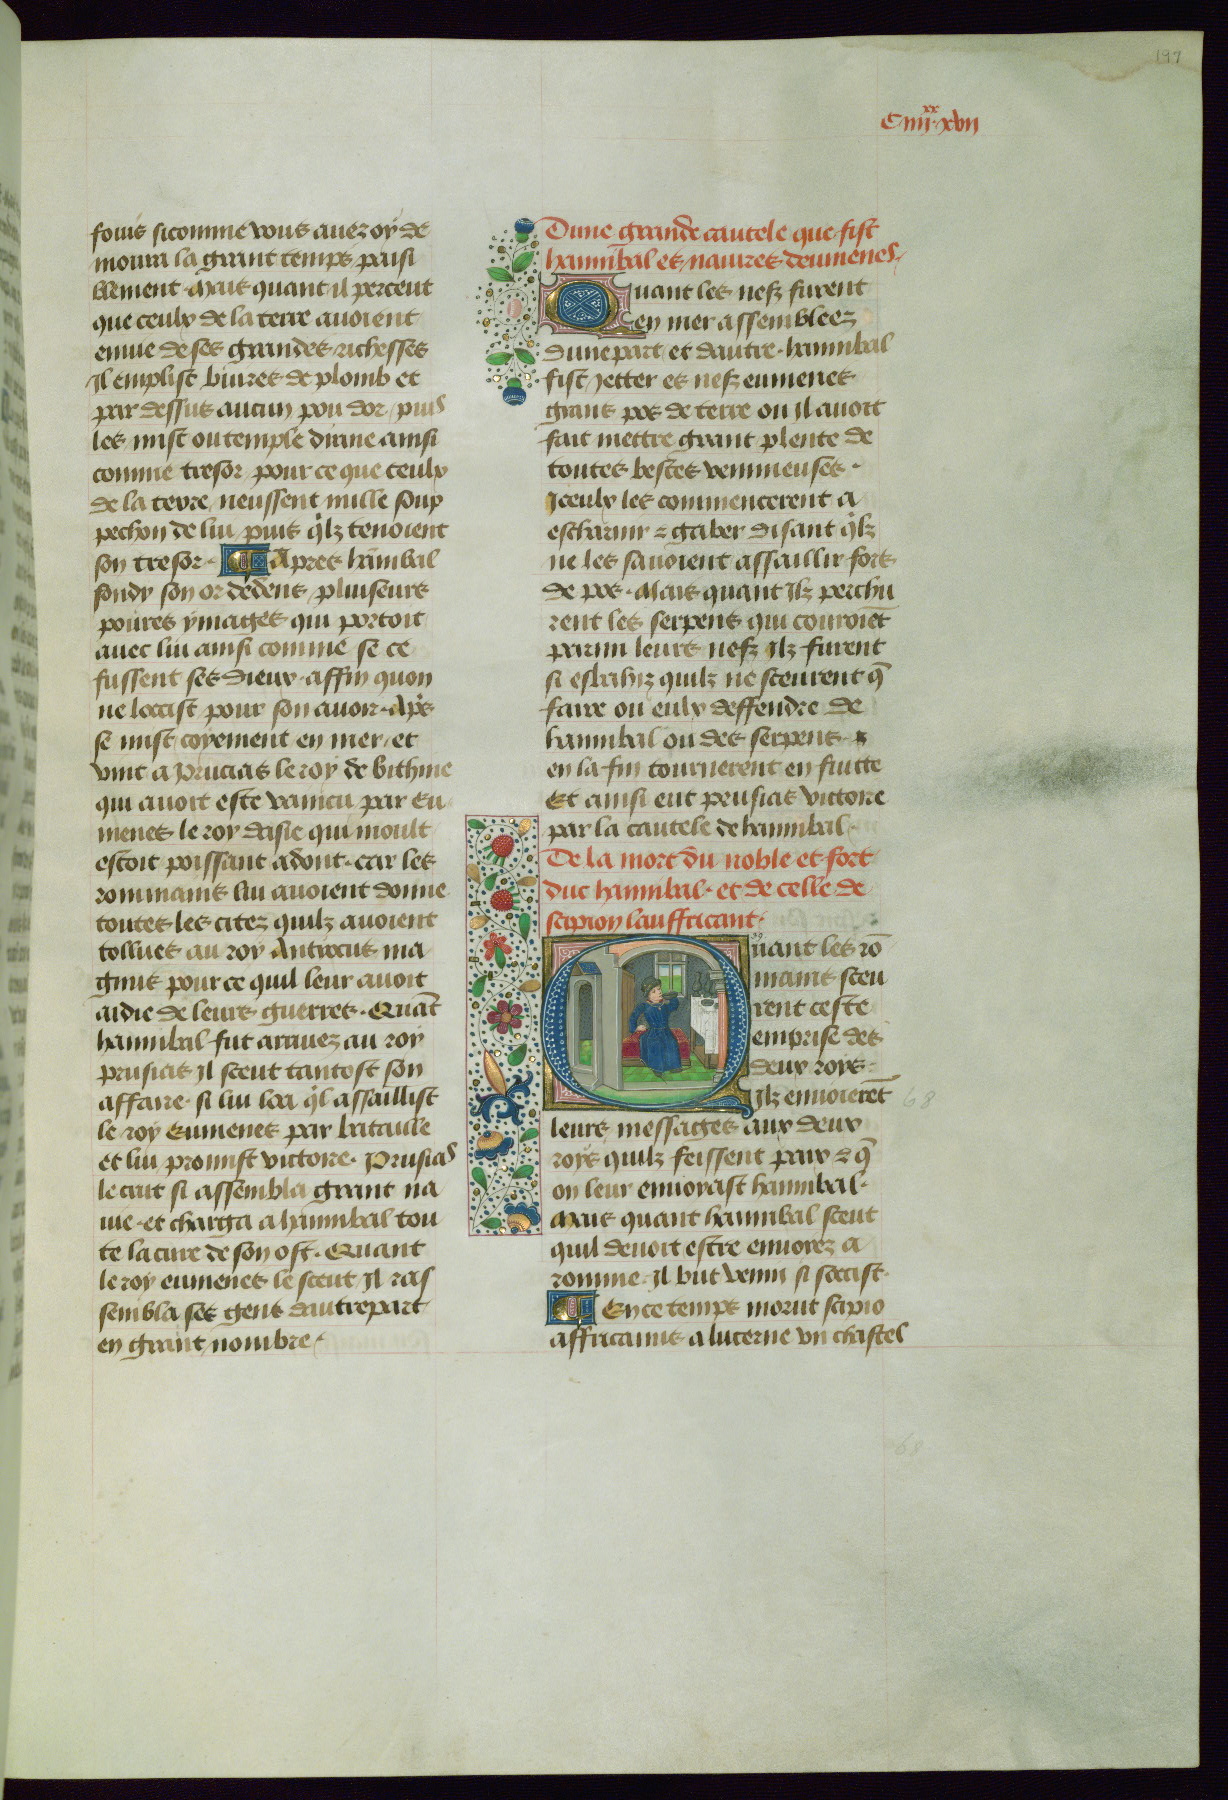 197
C·iiijˣˣ·xvij
fouis sicomme vous auez oy de
moura la grant temps paisi
blement· Mais quant il perceut
que ceulx de la terre auoient
enuie de ses grandes richesses
Il emplist buires de plomb et
par dessus aucun pou dor / puis
les mist ou temple diane ainsi
comme tresor pour ce que ceulx
de la terre neussent nulle soup
pechon de lui puis qͥlz tenoient
son tresor· Apres hānibal
fondy son or dedens pluiseurs
poures ymages qui portoit
auec lui ainsi comme se ce
fussent ses dieux affin quon
ne locist pour son auoir· Apͤs
se mist coyement en mer / et
vint a prucias le roy de bithine
qui auoit este vaincu par Eu
menes le roy dasie qui moult
estoit poissant adont· car les
rommains lui auoient donne
toutes les citez quilz auoient
tollues au roy Antiocus ma
gnus pour ce quil leur auoit
aidie de leurs guerres· Quāt
hannibal fut arriuez au roy
prusias Il sceut tantost son
affaire· si lui loa qͥl assaillist
le roy Eumenes par bataille
et lui promist victoire· Prusias
le crut si assembla grant na
uie· et charga a hannibal tou
te la cure de son ost· Quant
le roy eumenes le sceut Il ras
sembla ses gens dautrepart
en grant nombre·
Dune grande cautele que fist
hannibal es nauires deumenes·
Quant les nefz furent
en mer assemblees
dunepart et dautre· hannibal
fist Jetter es nefz eumenes
grans pos de terre ou Il auoit
fait mettre grant plente de
toutes bestes venimeuses·
Jceulx les commencerent a
escharnir ⁊ gaber disant qͥlz
ne les sauoient assaillir fors
de pos· Mais quant Ilz perchu
rent les serpens qui couroiēt
parmi leurs nefz Ilz furent
si esbahiz quilz ne sceurent q̄
faire ou eulx deffendre de
hannibal ou des serpens·
en la fin tournerent en fuitte
Et ainsi eut prusias victoire
par la cautele de hannibal·
De la mort du noble et fort
duc hannibal· et de celle de
scipion lauffricant·
Quant les rō
mains sceu
rent ceste
emprise des
deux roys·
Ilz enuoierēt
leurs messages aux deux
roys quilz feissent paix ⁊ q̄
on leur enuoyast hannibal·
Mais quant hannibal sceut
quil deuoit estre enuoiez a
romme· Il but venin si soccist·
En ce temps morut scipio
affricanus a lucerne vn chastel
68
68